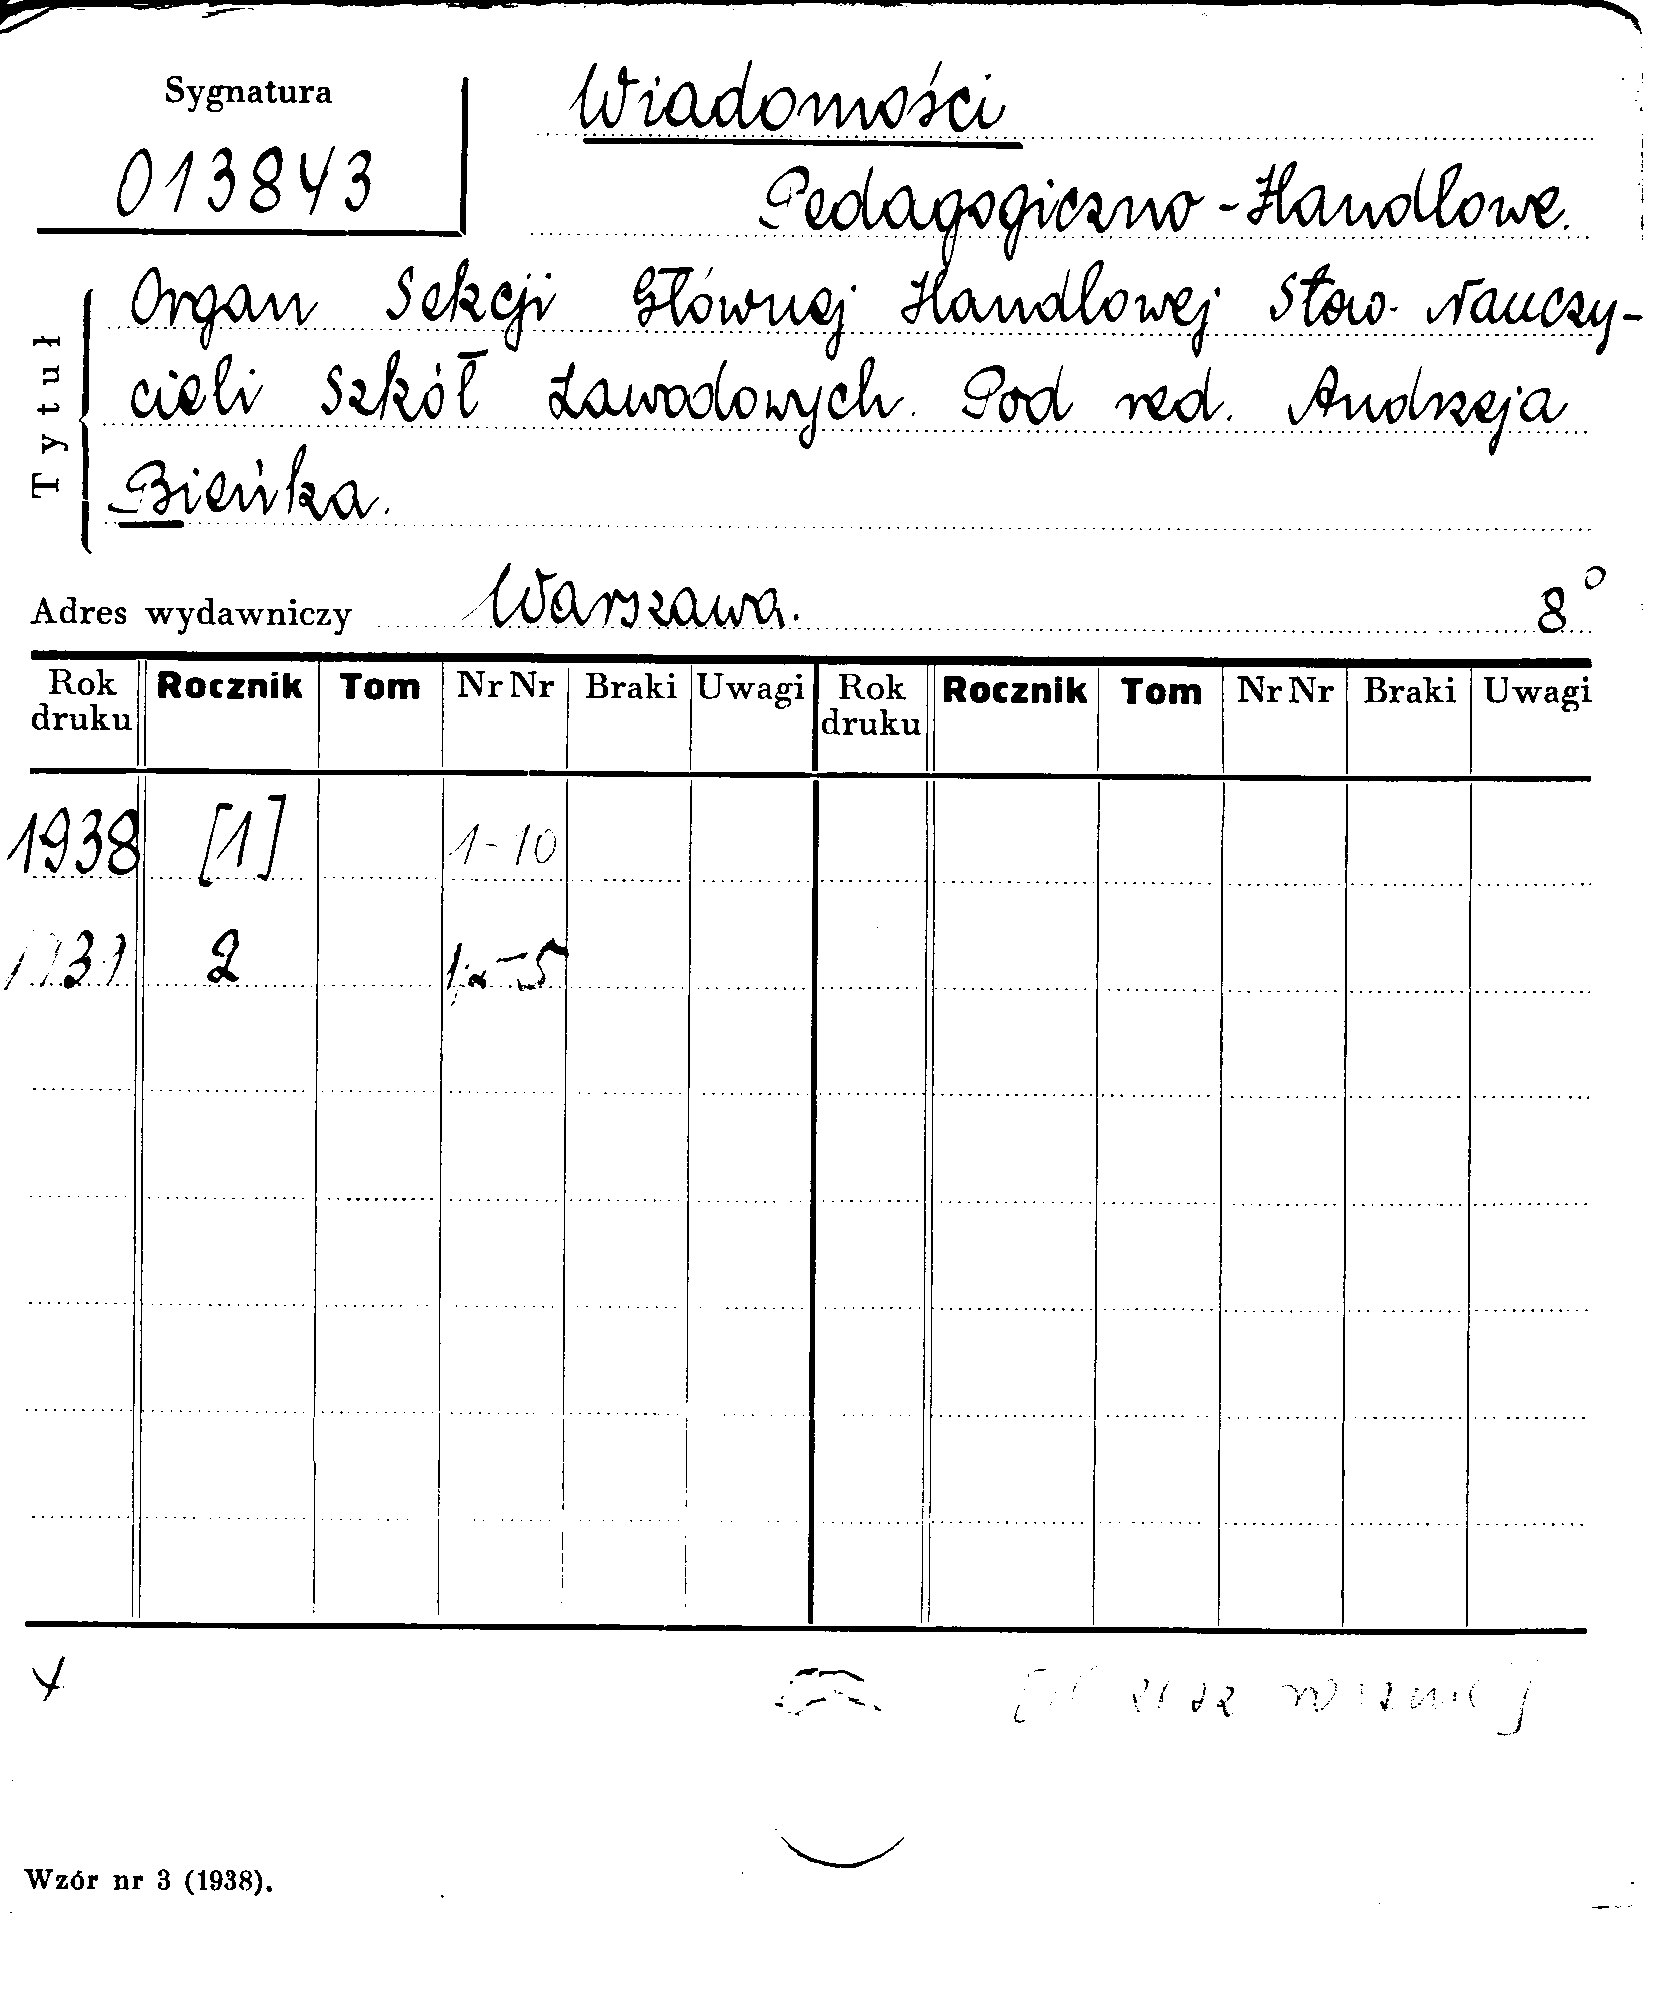 Sygnatura
013843
Wiadomości
Pedagogiczno-Handlowe.
Tytuł
Organ Sekcji Głównej Handlowej Stow. Nauczy-
cieli Szkół Zawodowych. Pod red. Andrzeja
Bieńka.
Adres wydawniczy Warszawa. 8°
Rok druku Rocznik Tom Nr Nr Braki Uwagi Rok druku Rocznik Tom Nr Nr Braki Uwagi
1938 [1] 1-10
2
Wzór nr 3 (1938).